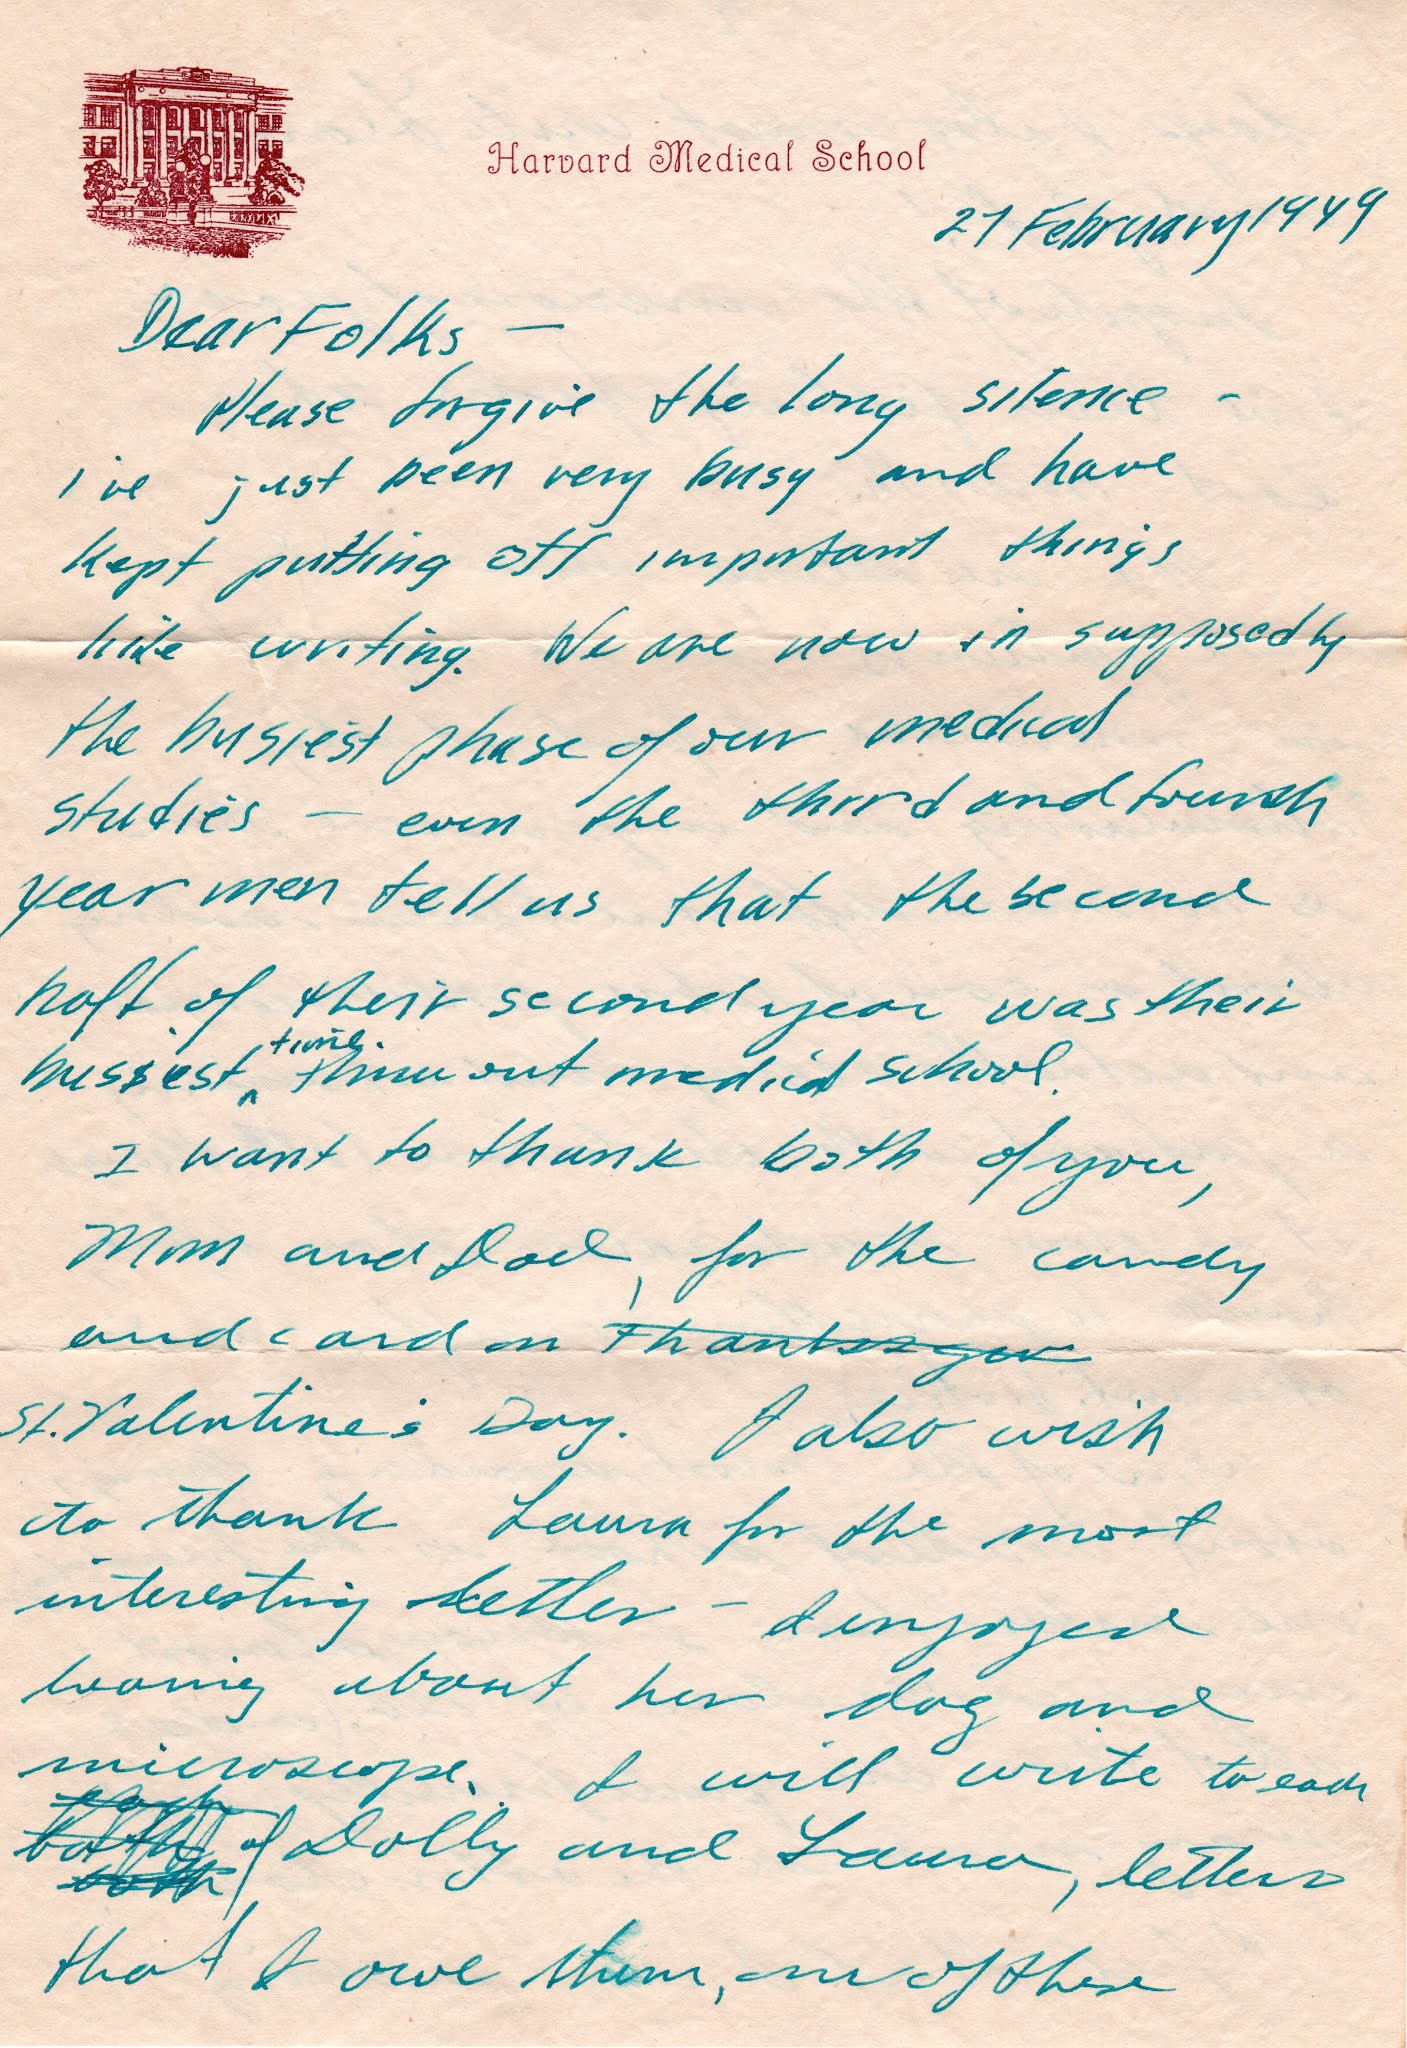 Harvard Medical School
27 February 1949
Dear Folks —
Please forgive the long silence -
I've just been very busy and have
kept putting off important things
like writing. We are now in supposedly
the busiest phase of our medical
studies — even the third and fourth
year men tell us that the second
half of their second year was their
busiest time thruout medical school.
I want to thank both of you,
Mom and Dad, for the candy
and card on
St. Valentine's Day. I also wish
to thank Laura for the most
interesting letter - I enjoyed
hearing about her dog and
microscope. I will write to each
both of Dolly and Laura, letters
that I owe them, one of these